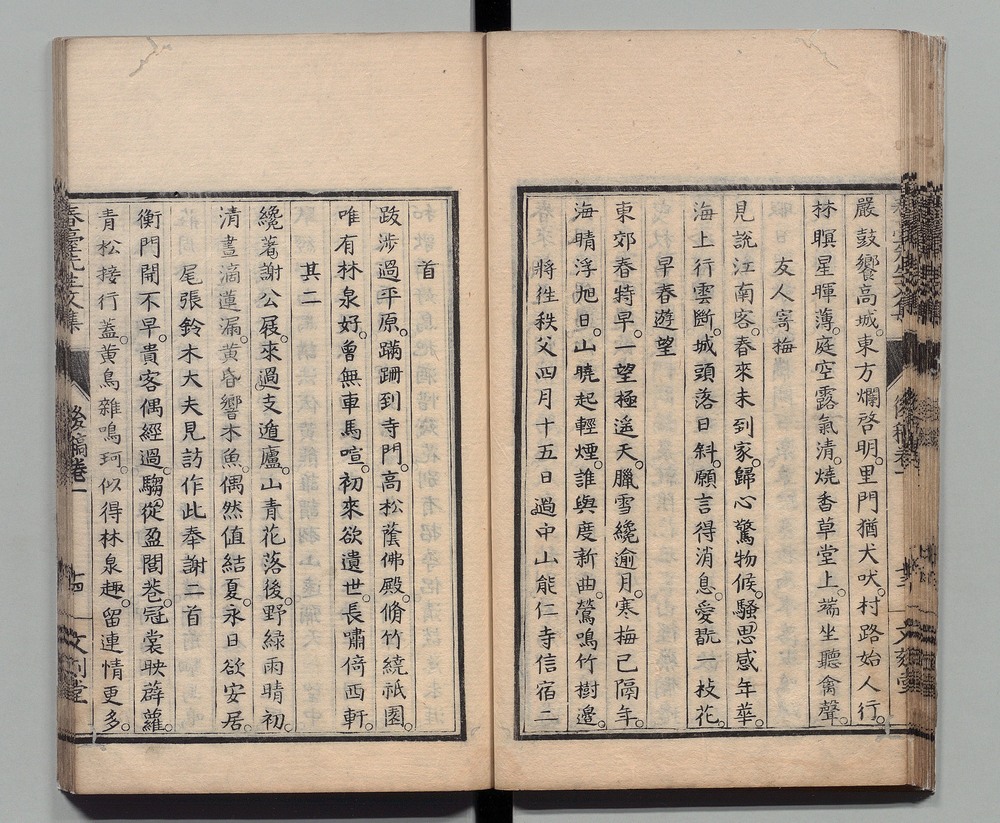 嚴鼓響高城東方爛啓明里門猶犬吠村路始人行
林暝星暉薄庭空露氣清燒香草堂上端坐聽禽聲
友人寄梅
見說江南客春來未到家歸心驚物候騷思感年華
海上行雲斷城頭落日斜願言得消息愛翫一枝花
早春遊望
東郊春特早一望極遙天臘雪纔逾月寒梅已隔年
海晴浮旭日山曉起輕煙誰與度新曲鶯鳴竹樹邊
將徃秩父四月十五日過中山能仁寺信宿二
首
跋涉過平原蹣跚到寺門高松蔭佛殿脩竹繞祇園
唯有林泉好曾無車馬喧初來欲遺世長嘯倚西軒
其二
纔著謝公屐來過支遁廬山青花落後野綠雨晴初
清晝滴蓮漏黃昏響木魚偶然值結夏永日欲安居
尾張鈴木大夫見訪作此奉謝二首
衡門開不早貴客偶經過騶從盈閭巷冠裳映薜蘿
青松接行蓋黃鳥雜鳴珂似得林泉趣留連情更多
春臺先生文集 後稿卷一 十四